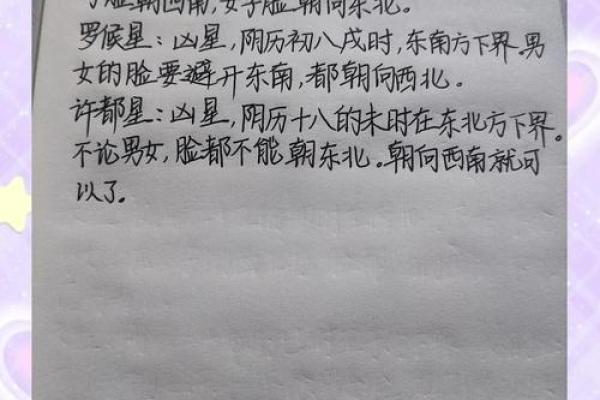 子脸朝西南,女子脸朝向东北。
罗候星:凶星,阴历初八戌时,东南方下界.男
女的脸要避开东南,都朝向西北。
许都星:凶星,阴历十八的未时在东北方下界。
不论男女,脸都不能朝东北。朝向西南就可
以了.